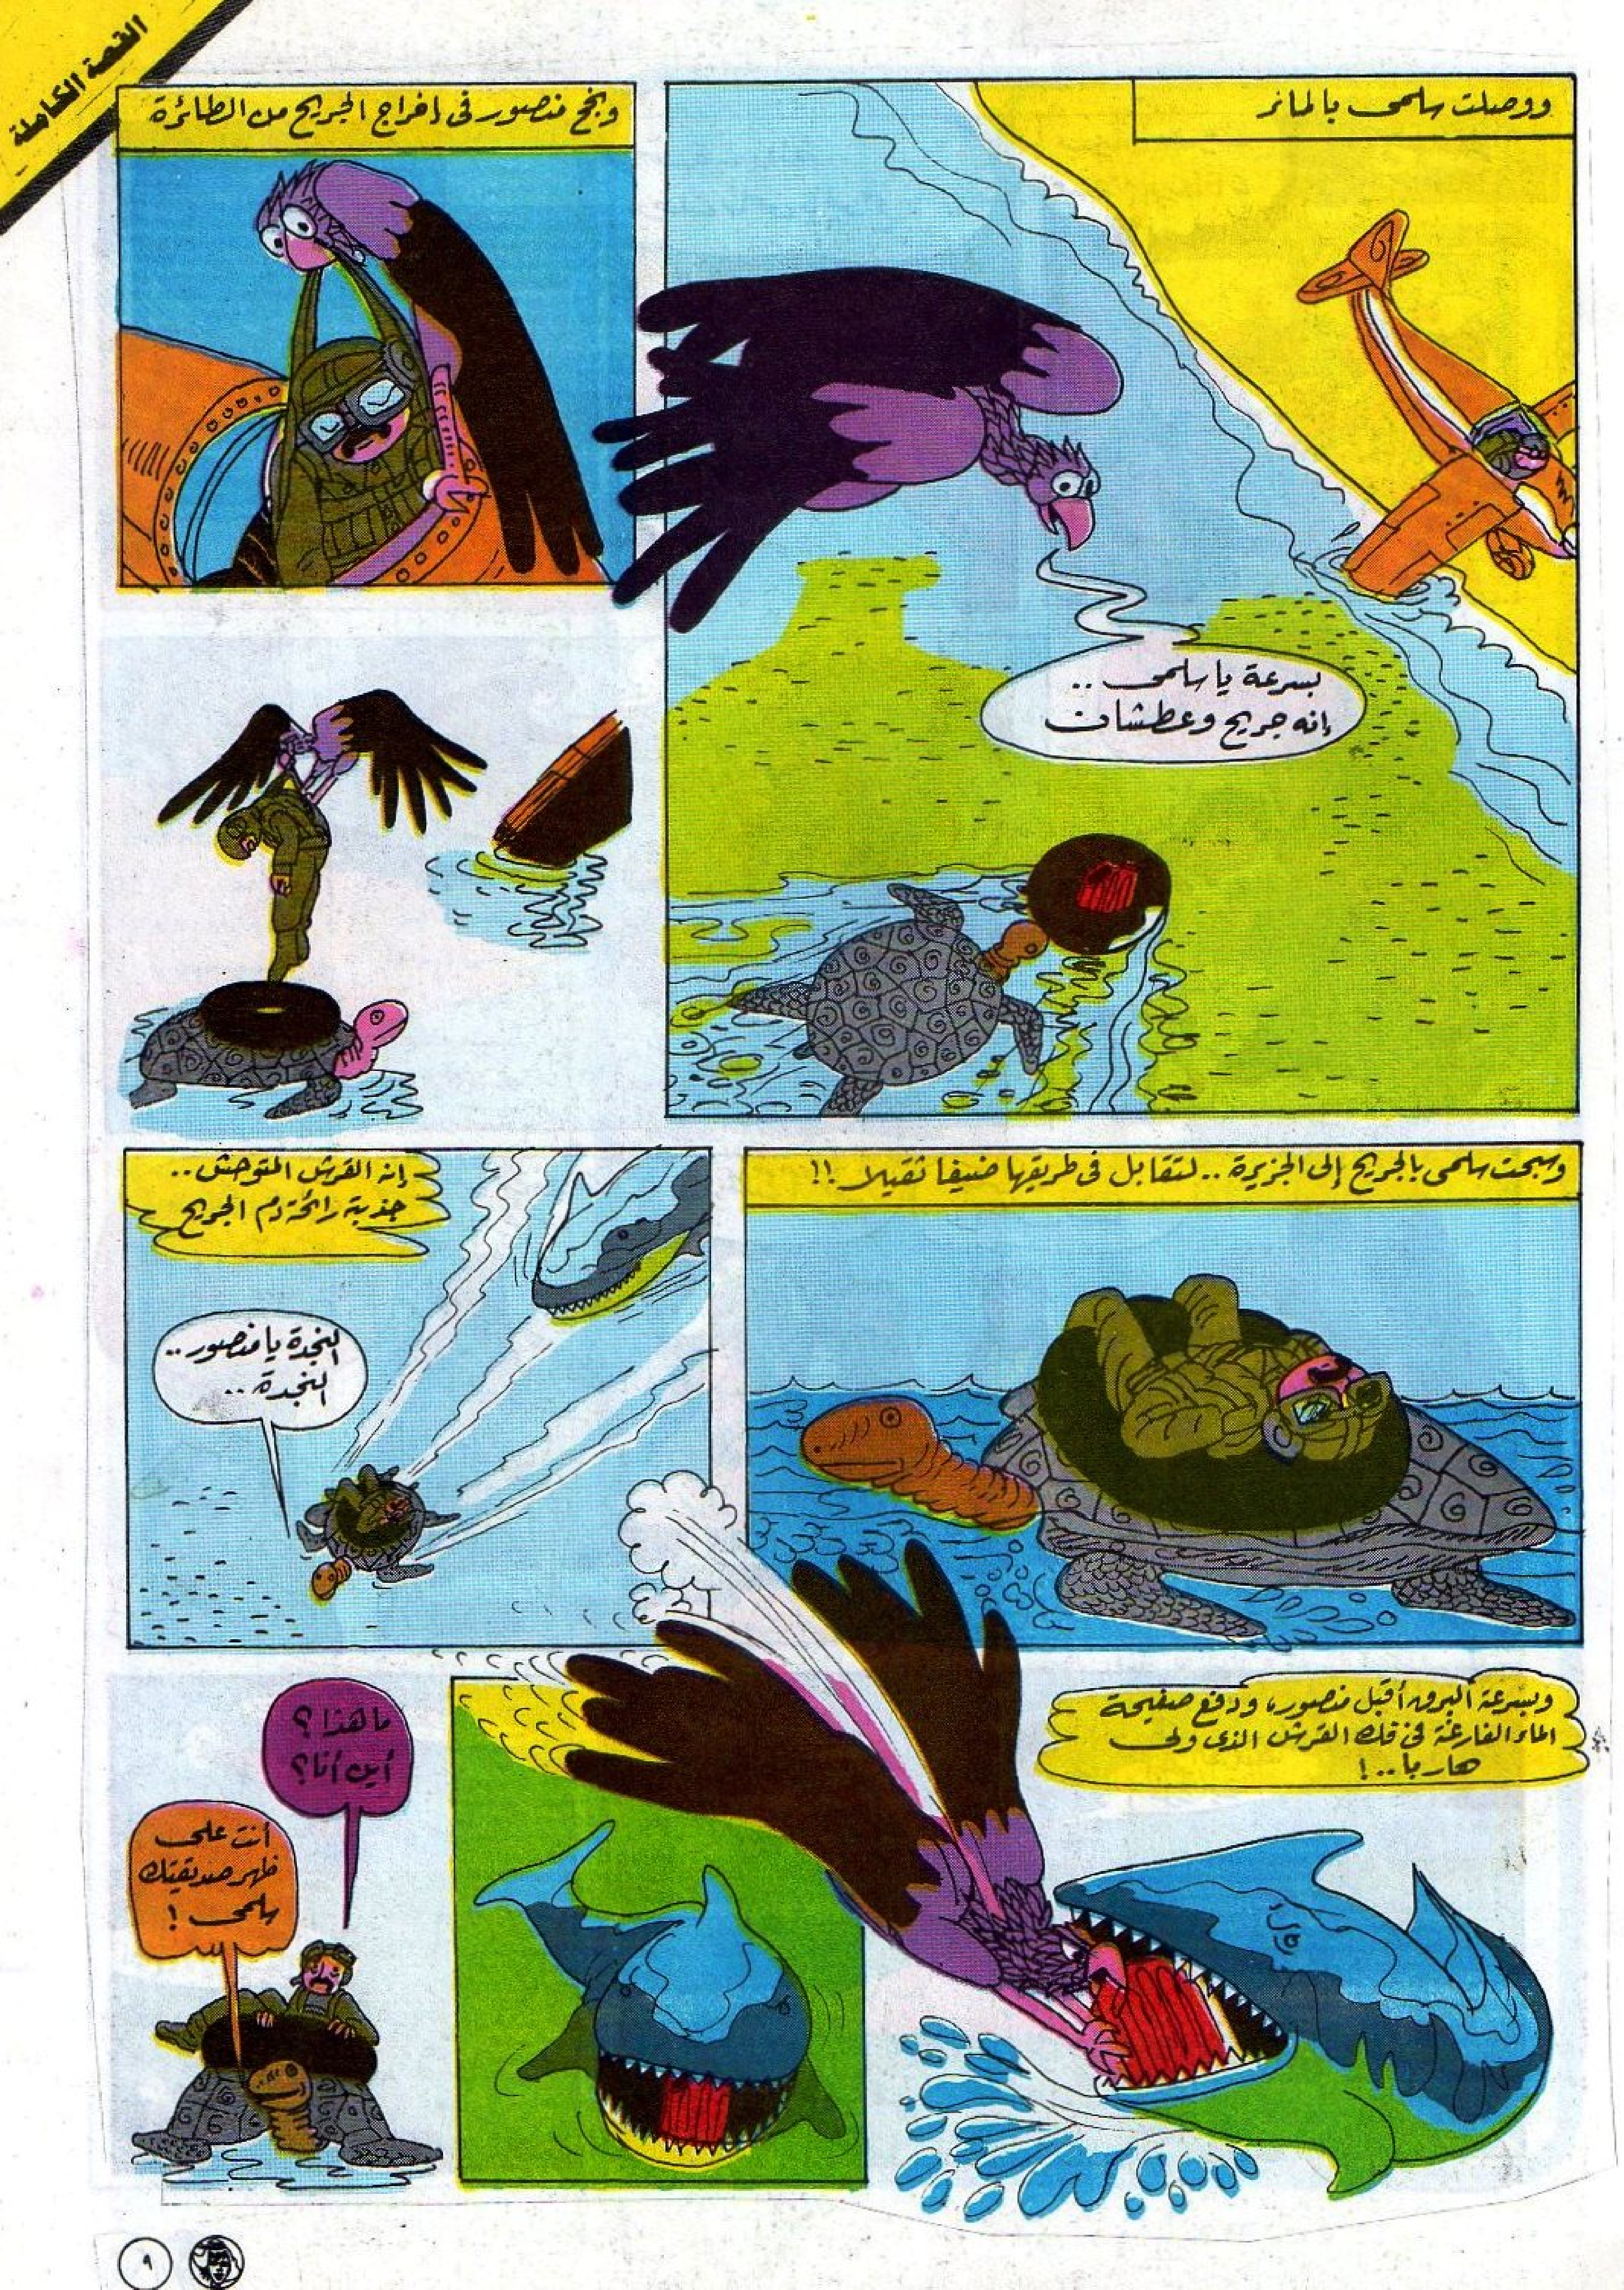 القصة الكاملة
ووصلت سلمى بالماء
بسرعة يا سلمى ..
إنه جريح وعطشان
ونجح منصور فى اخراج الجريح من الطائرة
وسبحت سلمى بالجريح إلى الجزيرة .. لتقابل فى طريقها ضيفا ثقيلا !!
إنه القرش المتوحش ..
جذبته رائحة دم الجريح
النجدة يا منصور ..
النجدة ..
وبسرعة البرق أقبل منصور، ودفع صفيحة
الماء الفارغة فى فك القرش الذى ولى
هاربا .. !
ما هذا ؟
أين أنا ؟
أنت على
ظهر صديقتك
سلمى !
٩